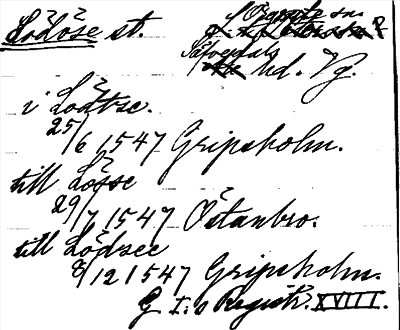 Lödöse st.
Sävedals hd. Vg.
i Lödtse.
25/6 1547 Gripsholm.
till Lösse
29/7 1547 Östanbro.
till Lödsee
8/12 1547 Gripsholm.
G. I:s Registr. XVIII.